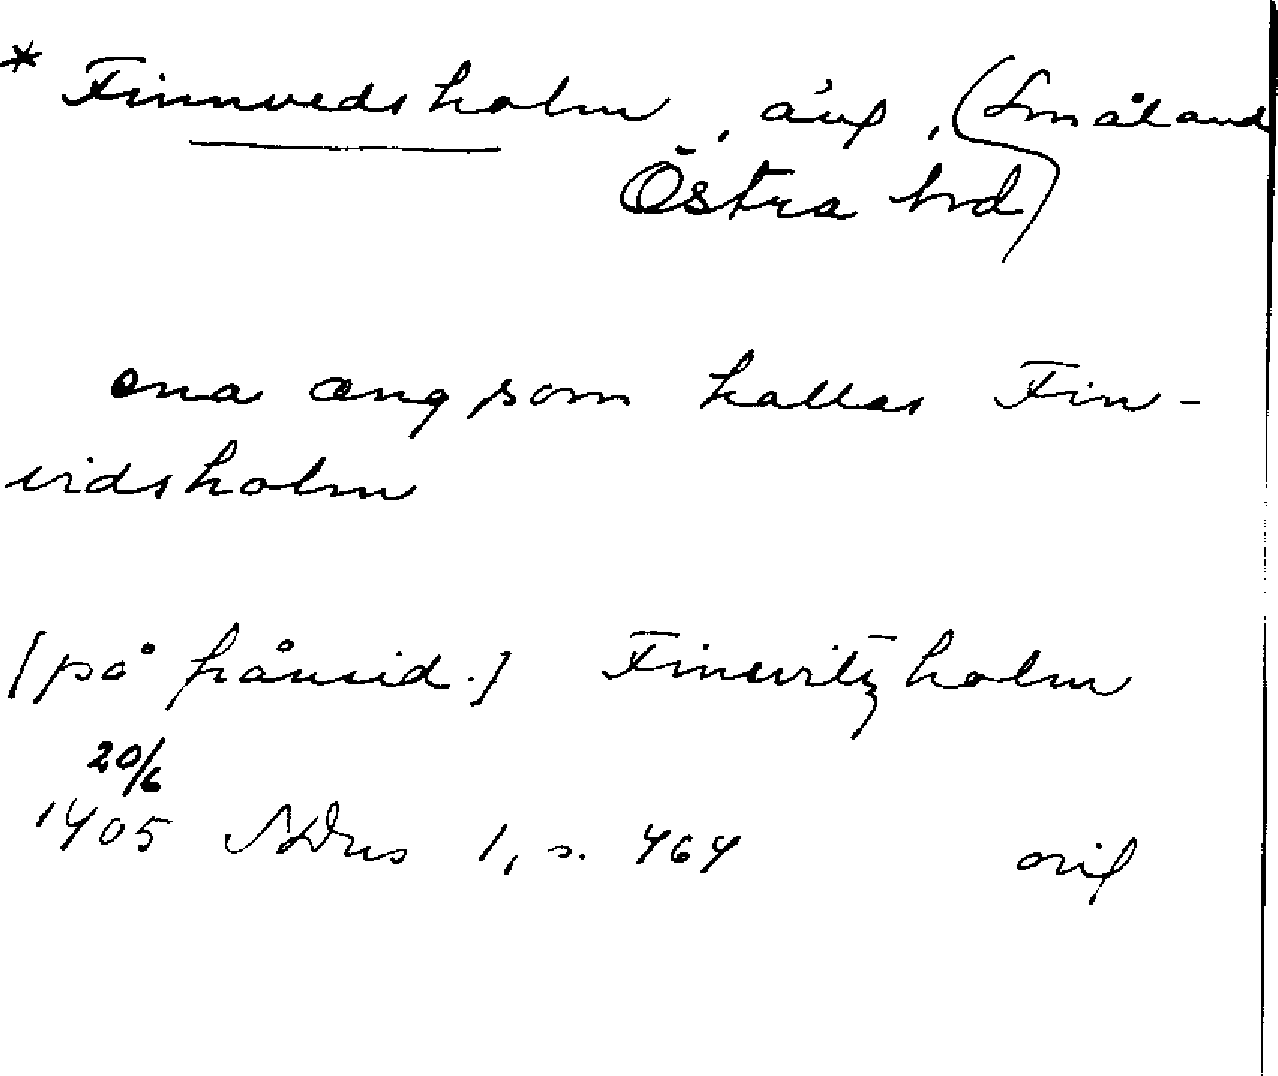 * Finnvedsholm, äng, (Småland
Östra hrd)
ena æng som kallas Fin-
vidsholm
[på frånsid.] Finevitzholm
20/6
1405 SDns 1, s. 464 orig